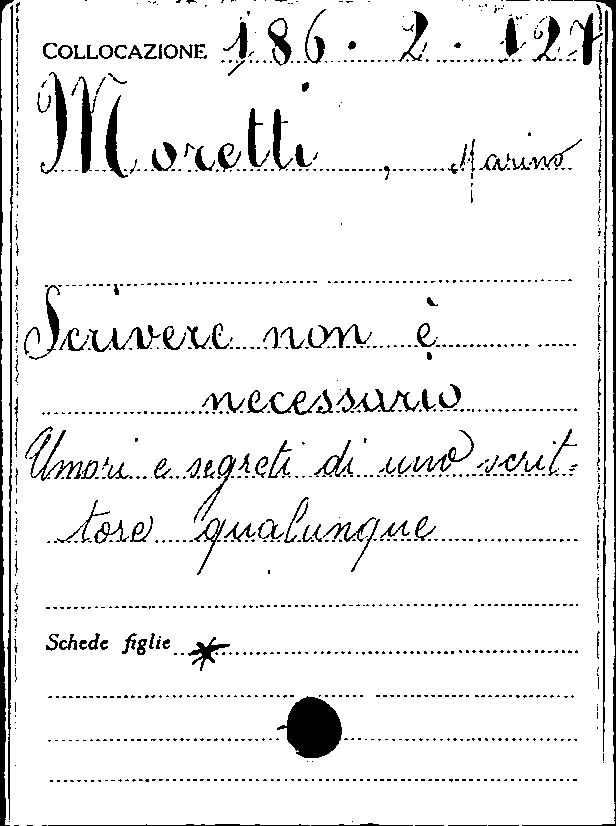 COLLOCAZIONE 186. 2. 127
Moretti, Marino
Scrivere non è
necessario
Umori e segreti di uno scrit-
tore qualunque
Schede figlie *